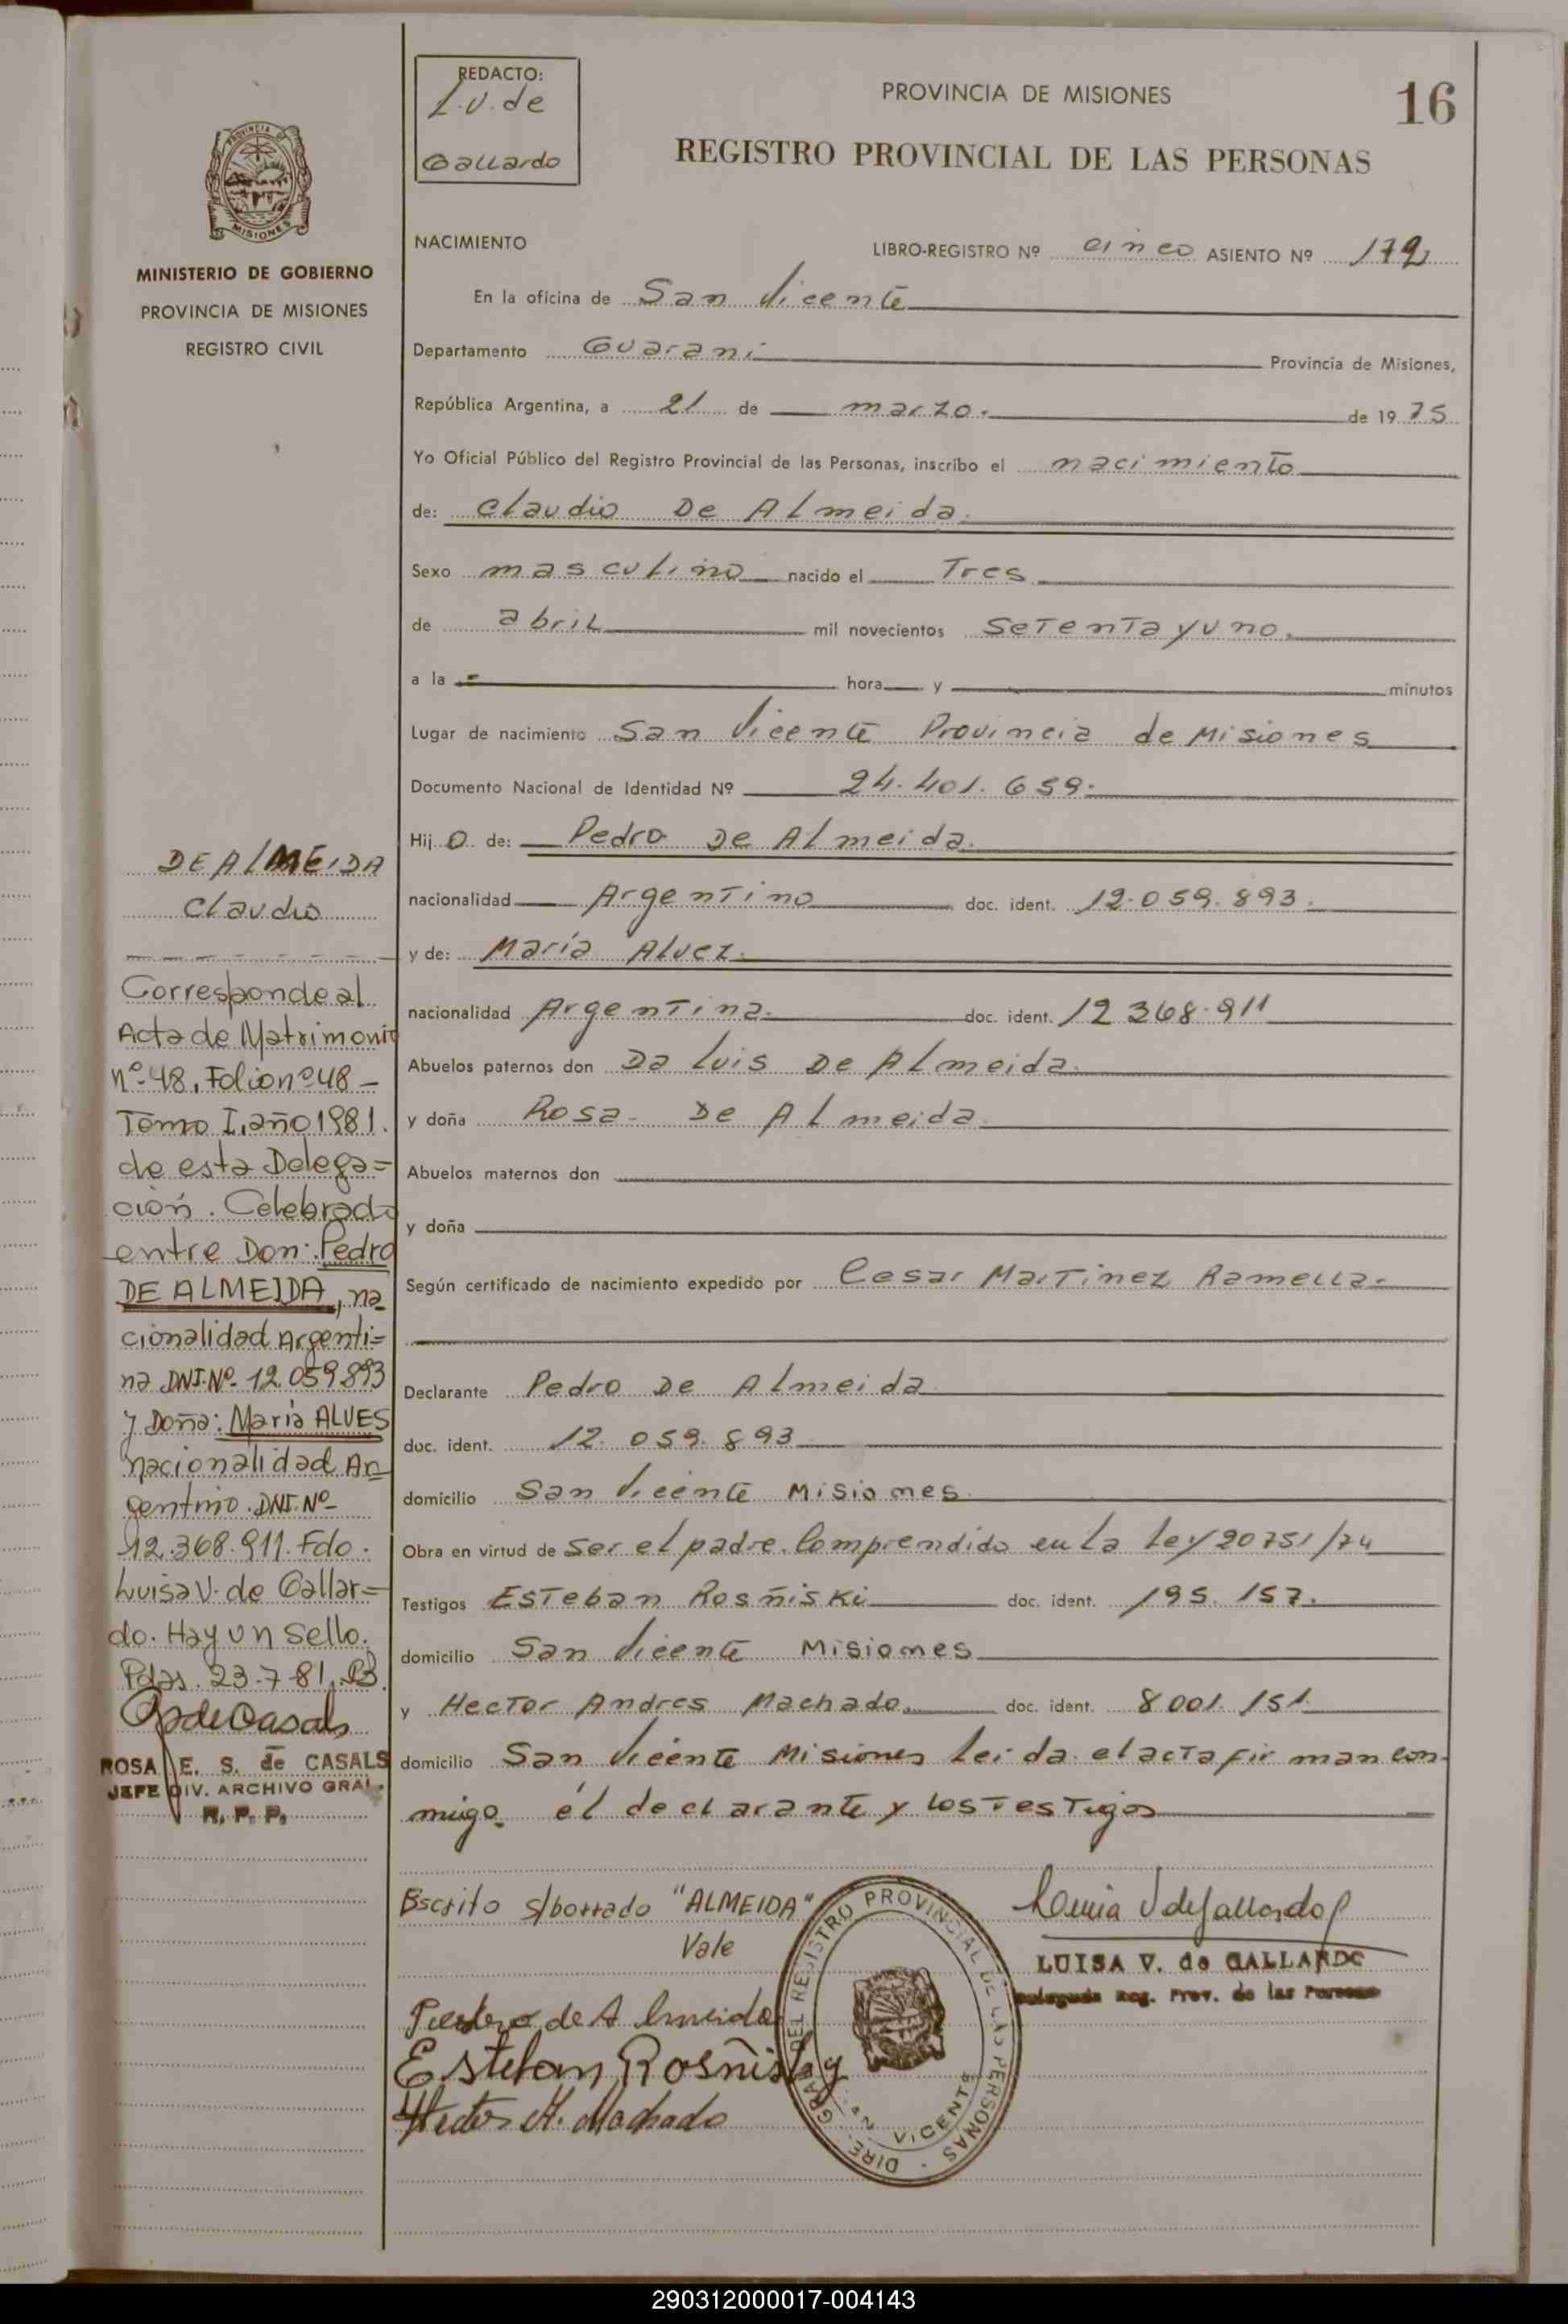 REDACTO:
L.V. de
Gallardo
PROVINCIA DE MISIONES
16
REGISTRO PROVINCIAL DE LAS PERSONAS
PROVINCIA DE
MISIONES
MINISTERIO DE GOBIERNO
PROVINCIA DE MISIONES
REGISTRO CIVIL
NACIMIENTO
LIBRO-REGISTRO Nº cinco ASIENTO Nº 172
En la oficina de San Vicente
Departamento Guarani Provincia de Misiones,
República Argentina, a 21 de marzo. de 1975
Yo Oficial Público del Registro Provincial de las Personas, inscribo el nacimiento
de: Claudio De Almeida.
Sexo masculino nacido el Tres
de abril mil novecientos setenta y uno.
a la hora y minutos
Lugar de nacimiento San Vicente Provincia de Misiones
Documento Nacional de Identidad Nº 24.401.659.
Hijo de: Pedro De Almeida.
nacionalidad Argentino doc. ident. 12.059.893.
y de: María Alvez.
nacionalidad Argentina. doc. ident. 12 368.911
Abuelos paternos don Da Luis De Almeida.
y doña Rosa De Almeida.
Abuelos maternos don
y doña
Según certificado de nacimiento expedido por Cesar Martinez Ramella.
Declarante Pedro De Almeida
doc. ident. 12.059.893
domicilio San Vicente Misiones
Obra en virtud de ser el padre. Comprendido en la ley 20751/74
Testigos Esteban Rosñiski doc. ident. 195.157.
domicilio San Vicente Misiones
y Hector Andres Machado. doc. ident. 8001.151.
domicilio San Vicente Misiones leida el acta firman con-
migo el declarante y los testigos
Escrito s/borrado "ALMEIDA"
Vale
Pedro de Almeida
Esteban Rosñisky
Hector A. Machado
DIRE. GRAL. DEL REGISTRO PROVINCIAL DE LAS PERSONAS
SAN VICENTE
LUISA V. de GALLARDO
Delegada Reg. Prov. de las Personas
DE ALMEIDA
Claudio
Corresponde al
Acta de Matrimonio
nº 48, Folio nº 48 -
Tomo I, año 1981.
de esta Delega=
ción. Celebrado
entre Don: Pedro
DE ALMEIDA, na
cionalidad Argenti=
na DNI.Nº 12.059893
y Doña: María ALVES
nacionalidad Ar
gentino. DNI.Nº
12.368.911. Fdo.
Luisa V. de Gallar=
do. Hay un sello.
Pdas. 23-7-81.
ROSA E. S. de CASALS
JEFE DIV. ARCHIVO GRAL.
R. P. P.
290312000017-004143